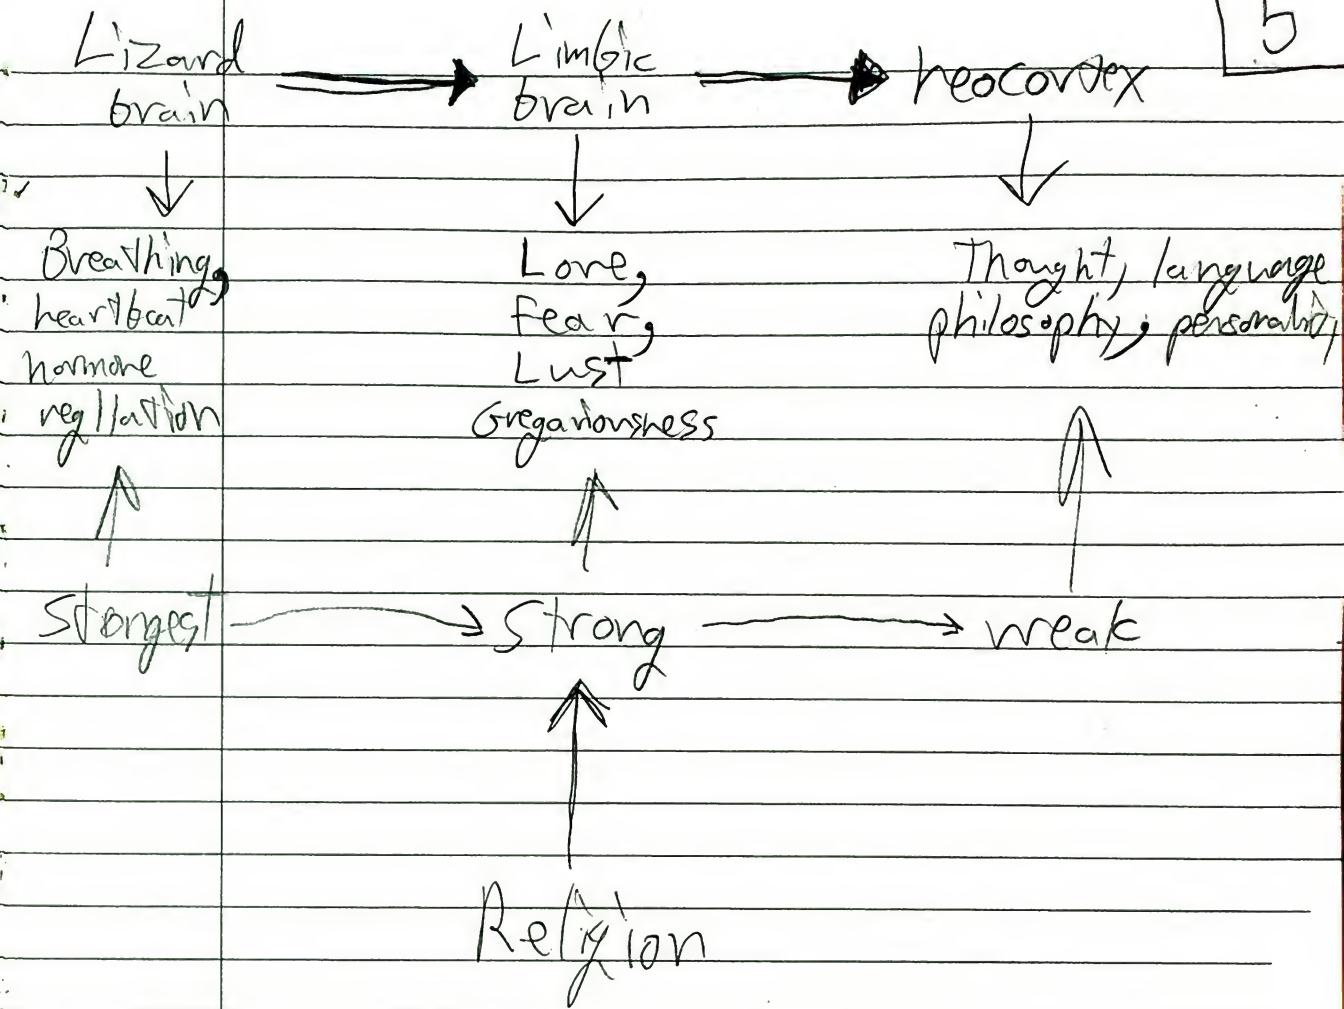 5
Lizard
brain
Limbic
brain
neocortex
Breathing,
heartbeat
hormone
regllation
Love,
Fear,
Lust
Gregariousness
Thought, language
philosophy, personality,
Stongest
Strong
weak
Religion